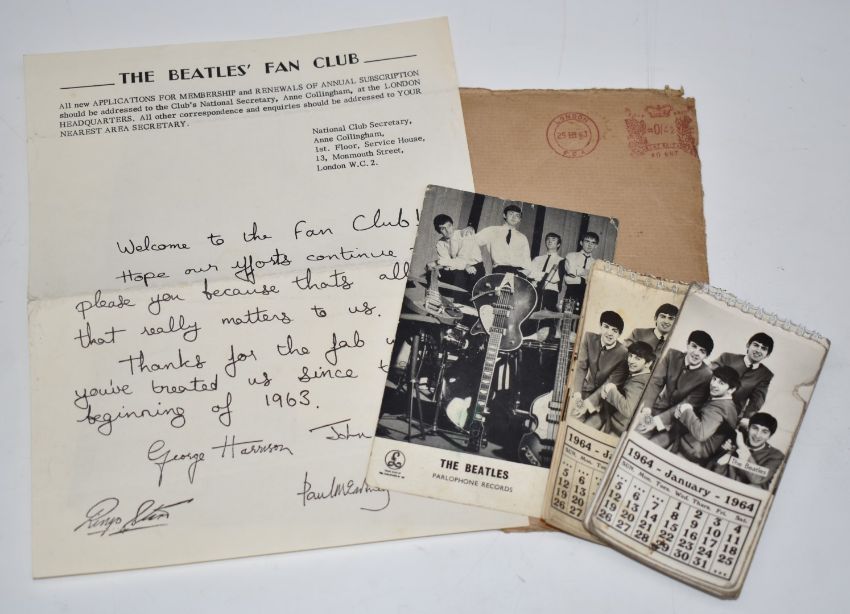 THE BEATLES' FAN CLUB
All new APPLICATIONS FOR MEMBERSHIP and RENEWALS OF ANNUAL SUBSCRIPTION
should be addressed to the Club's National Secretary, Anne Collingham, at the LONDON
HEADQUARTERS. All other correspondence and enquiries should be addressed to YOUR
NEAREST AREA SECRETARY.
National Club Secretary,
Anne Collingham,
1st. Floor, Service House,
13, Monmouth Street,
London W.C. 2.
Welcome to the Fan Club!
Hope our efforts continue
please you because thats all
that really matters to us.
Thanks for the fab
you've treated us since
beginning of 1963.
George Harrison John
Paul McCartney
Ringo Starr
LONDON
THE BEATLES
PARLOPHONE RECORDS
1964 - Ja
SUN. Mon.
5 6
12 13
19 20
26
The Beatles
1964 - January - 1964
SUN. Mon. Tues. Wed. Thurs. Fri. Sat.
... ... ... 1 2 3 4
5 6 7 8 9 10 11
12 13 14 15 16 17 18
19 20 21 22 23 24 25
26 27 28 29 30 31 ...